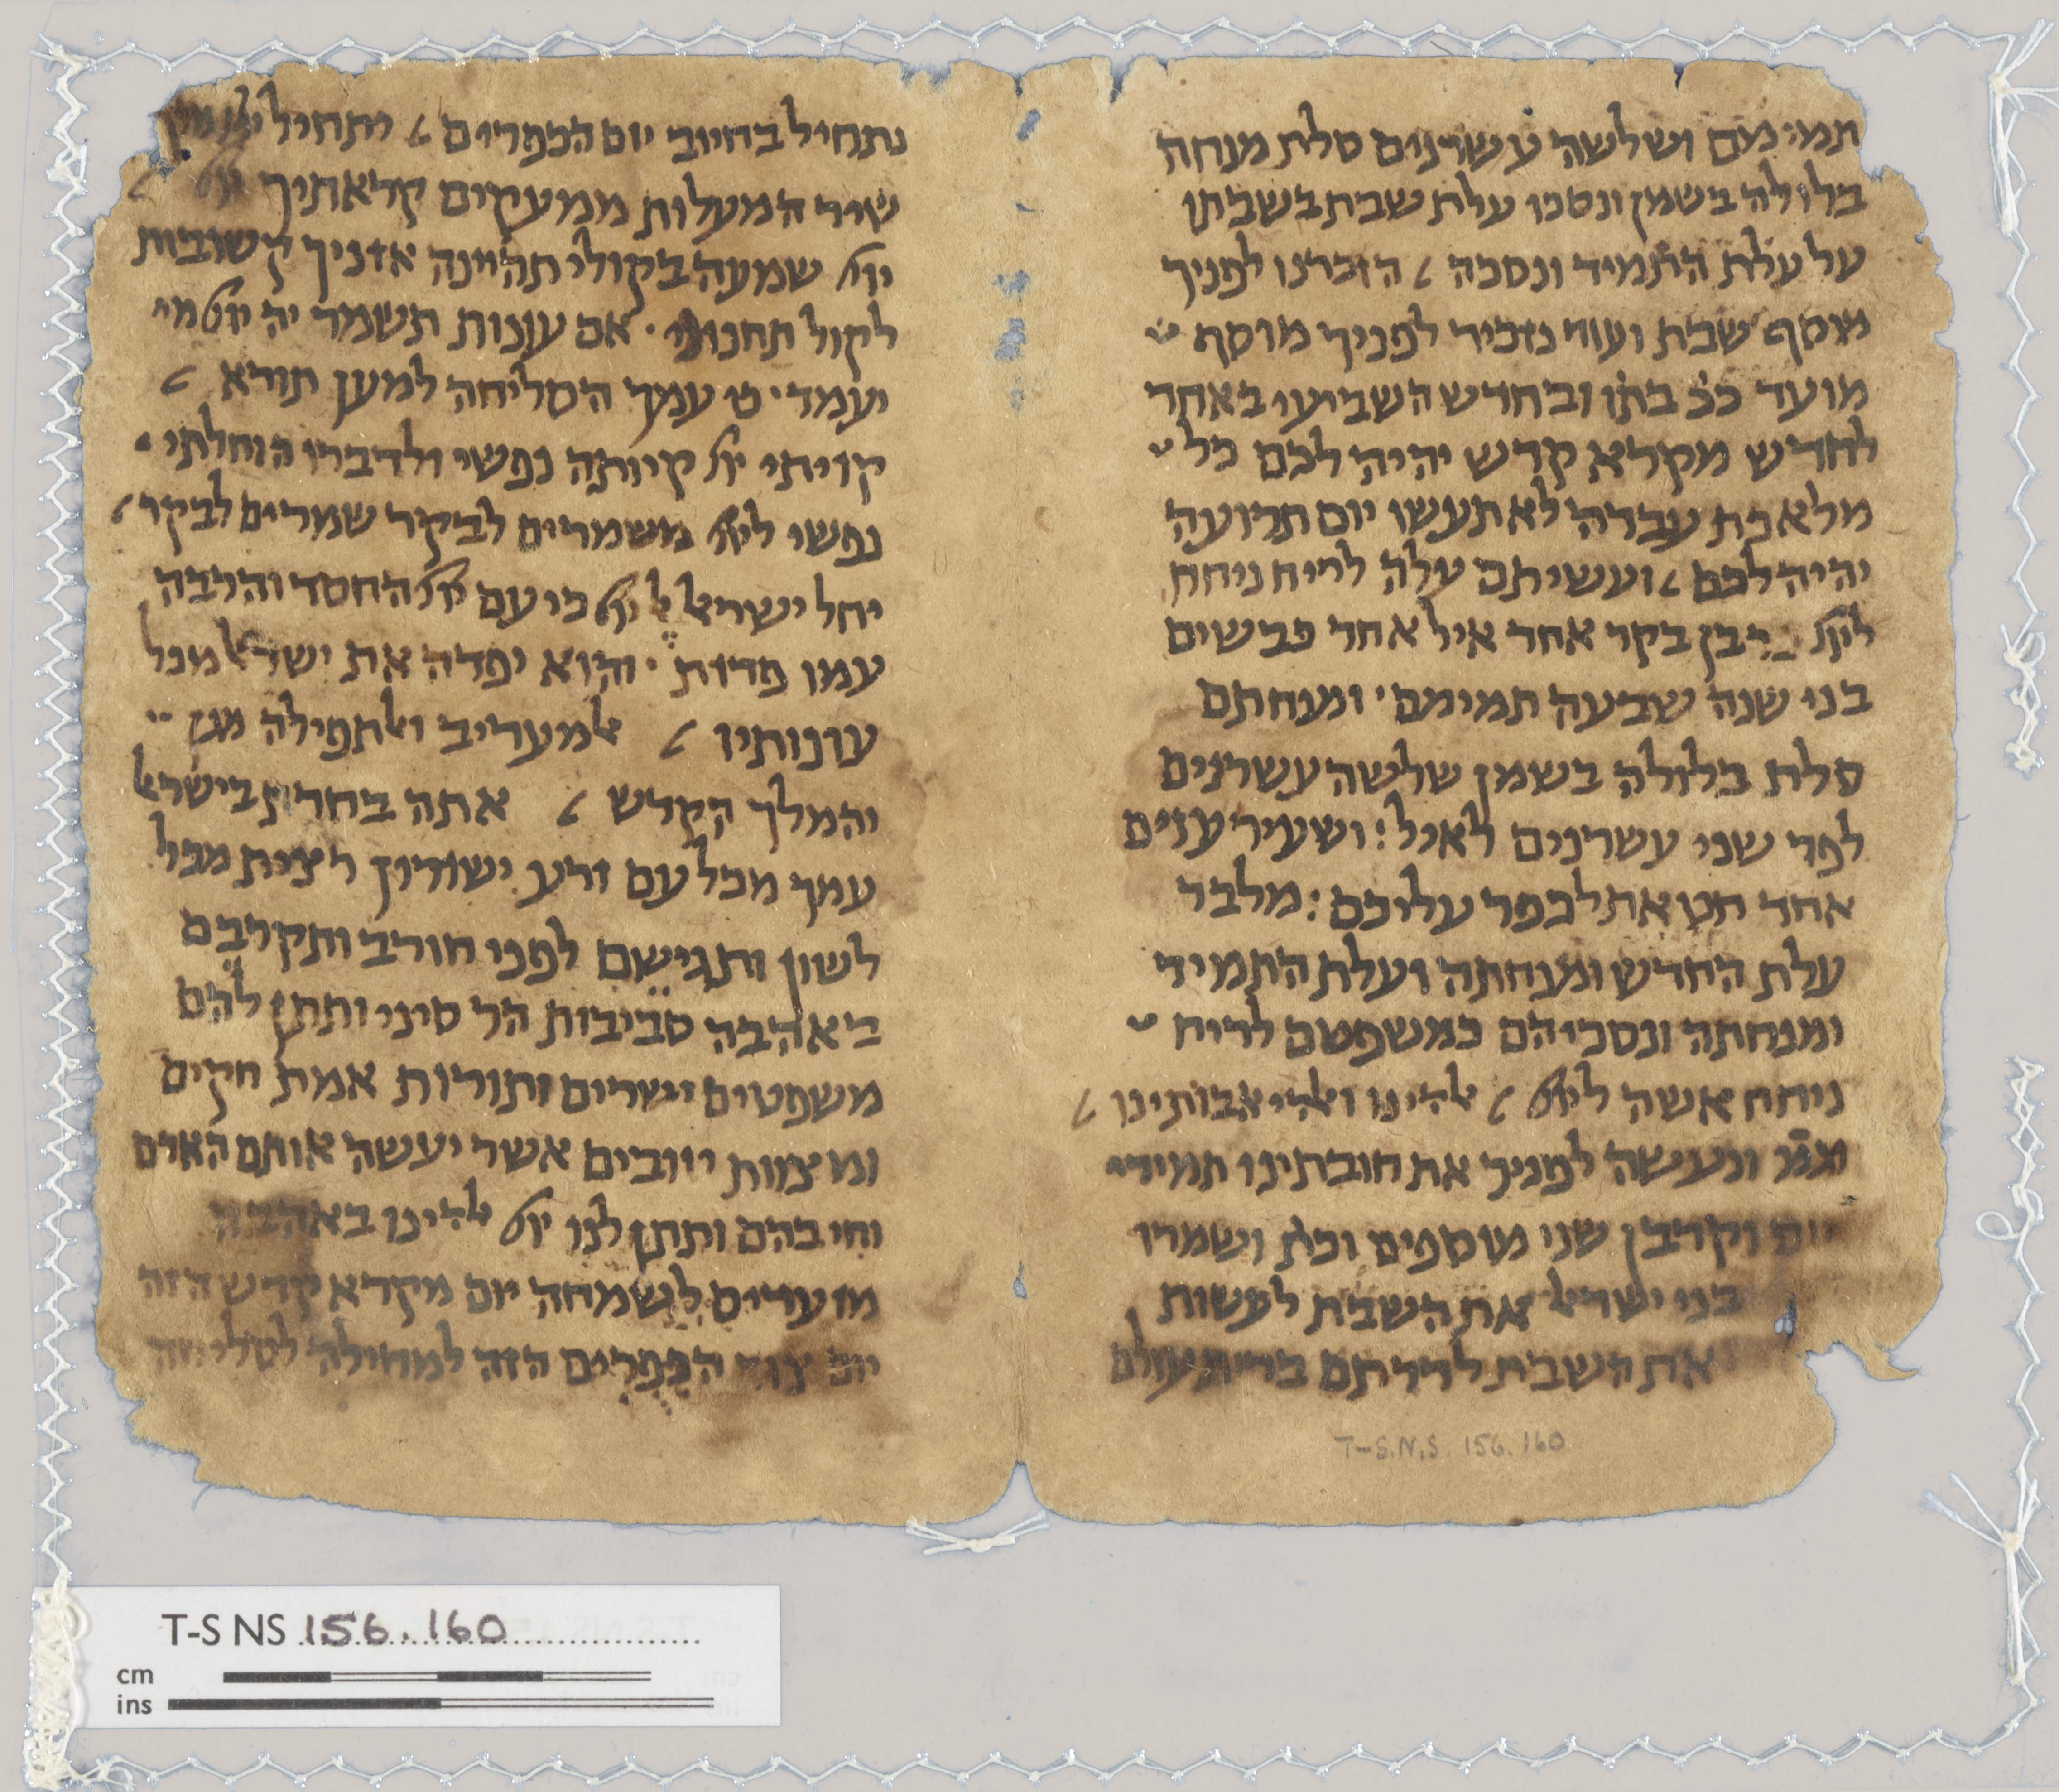 תמימם ושלשה עשרנים סלת מנחה
בלולה בשמן ונסכו עלת שבת בשבתו
על עלת התמיד ונסכה / הזכרנו לפניך
מוסף שבת ועוד נזכיר לפניך מוסף
מועד ככ בתו ובחדש השביעי באחד
לחדש מקרא קדש יהיה לכם כל
מלאכת עבדה לא תעשו יום תרועה
יהיה לכם / ועשיתם עלה לריח ניחח
בן בקר אחד איל אחד כבשים
בני שנה שבעה תמימם ומנחתם
סלת בלולה בשמן שלשה עשרנים
לפר שני עשרנים לאיל : ושעיר עזים
אחד חטאת לכפר עליכם : מלבד
עלת החדש ומנחתה ועלת התמיד
ומנחתה ונסכיהם כמשפטם לריח
ניחח אשה
ונעשה לפניך את חובתינו תמידי
וקרבן שני מוספים וכת ושמרו
בני ישראל את השבת לעשות
את השבת לדרתם ברית עולם
נתחיל בחיוב יום הכפרים / יתחיל
שיר המעלות ממעקים קראתיך
שמעה בקולי תהיינה אזניך קשובות
לקול תחנוני . אם עונות תשמר יה מי
יעמד כי עמך הסליחה למען תורא /
קויתי קותה נפשי ולדברו הוחלתי
נפשי משמרים לבקר שמרים לבקר /
יחל ישראל כי עם החסד והרבה
עמו פדות והוא יפדה את ישראל מכל
עונותיו / אלמעריב ואלתפילה מגן
והמלך הקדש / אתה בחרת בישראל
עמך מכל עם זרע ישורון רצית מכל
לשון ותגישם לפני חורב ותקרבם
באהבה סביבות הר סיני ותתן להם
משפטים ישרים ותורות אמת חקים
ומצוות טובים אשר יעשה אותם האדם
וחי בהם ותתן לנו באהבה
מועדים לשמחה יום מקרא קדש הזה
יום צום הכפרים הזה למחילה לסליחה
T-S.N.S. 156.160
T-S NS 156.160
cm
ins